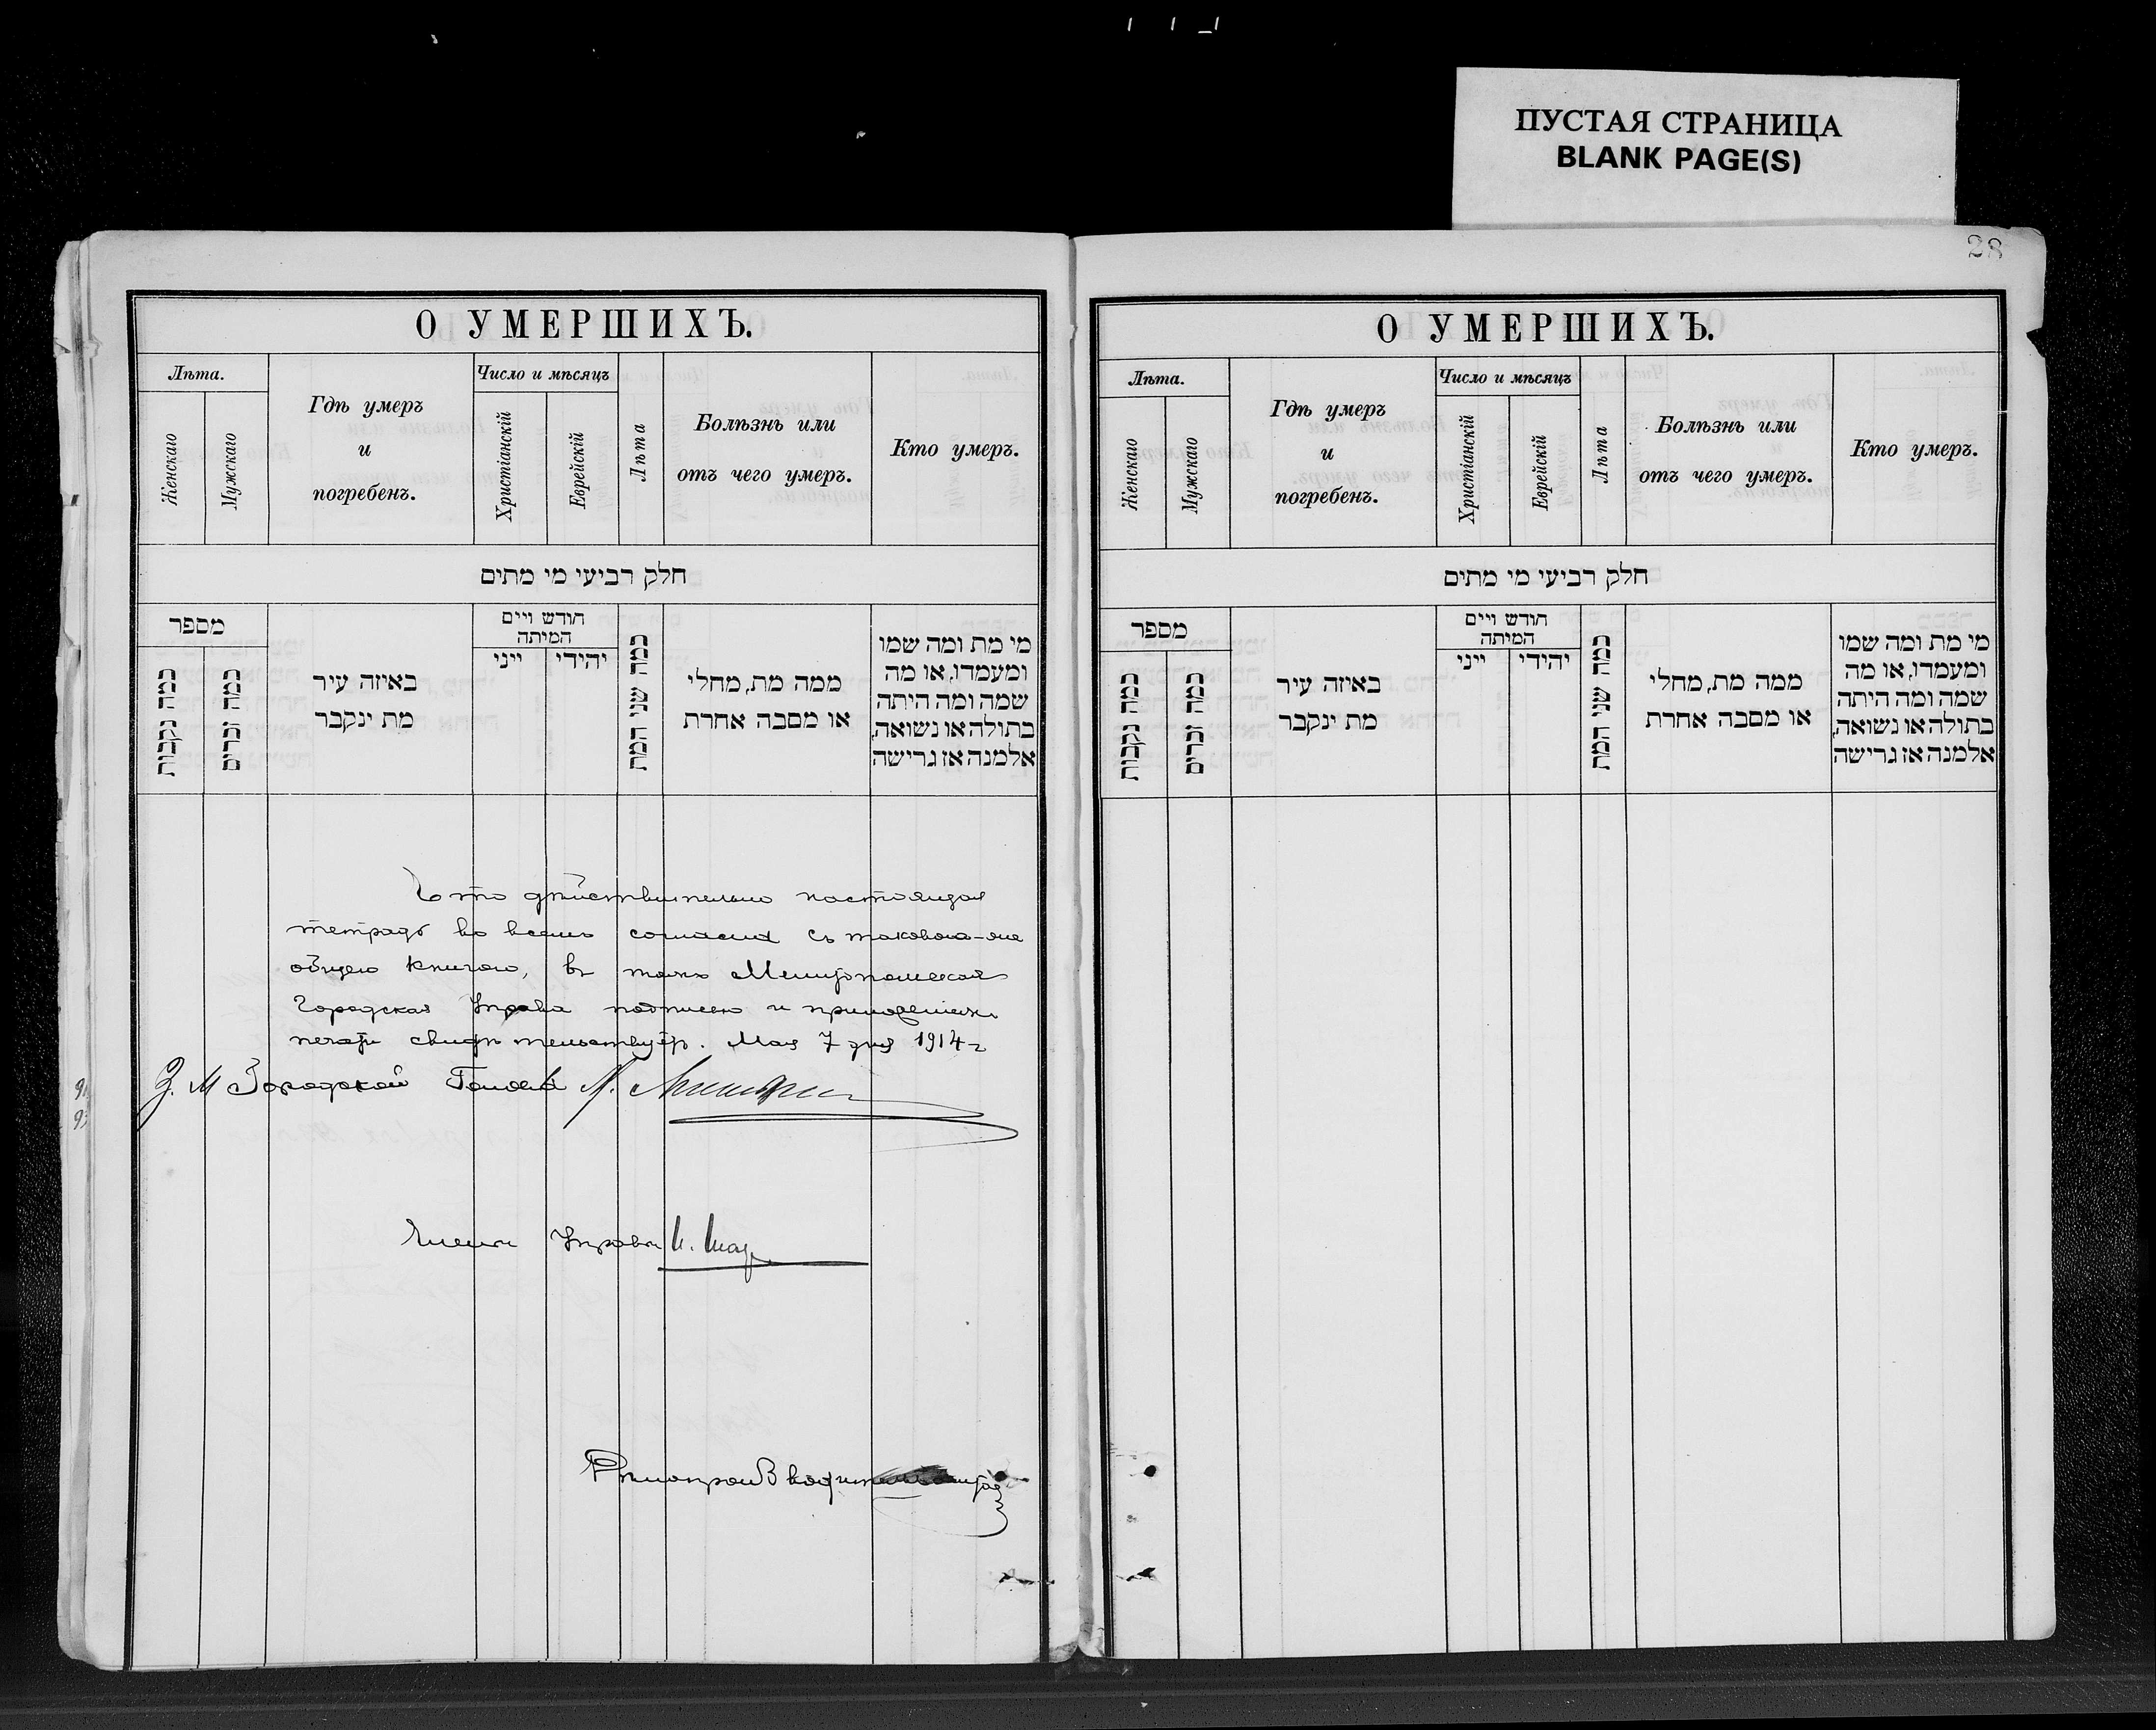 ПУСТАЯ СТРАНИЦА
BLANK PAGE(S)
О УМЕРШИХЪ.
Лѣта.
Женскаго
Мужскаго
Гдѣ умеръ
и
погребенъ.
Число и мѣсяцъ
Христіанскій
Еврейскій
Лѣта
Болѣзнь или
отъ чего умеръ.
Кто умеръ.
חלק רביעי מי מתים
מספר
כמה נקבות
כמה זכרים
באיזה עיר
מת ינקבר
חודש ויים
המיתה
ייני
יהידי
כמה שני המת
ממה מת, מחלי
או מסבה אחרת
מי מת ומה שמו
ומעמדו, או מה
שמה ומה היתה
בתולה או נשואה,
אלמנה אז גרישה
Что дѣйствительно настоящая
тетрадь во всемъ согласна съ таковою-же
общею книгою, въ томъ Мелитопольская
Городская Управа подписью и приложеніемъ
печати свидѣтельствуетъ. Мая 7 дня 1914 г
З. М Городской Головы Л.
Членъ Управы
28
О УМЕРШИХЪ.
Лѣта.
Женскаго
Мужскаго
Гдѣ умеръ
и
погребенъ.
Число и мѣсяцъ
Христіанскій
Еврейскій
Лѣта
Болѣзнь или
отъ чего умеръ.
Кто умеръ.
חלק רביעי מי מתים
מספר
כמה נקבות
כמה זכרים
באיזה עיר
מת ינקבר
חודש ויים
המיתה
ייני
יהידי
כמה שני המת
ממה מת, מחלי
או מסבה אחרת
מי מת ומה שמו
ומעמדו, או מה
שמה ומה היתה
בתולה או נשואה,
אלמנה אז גרישה